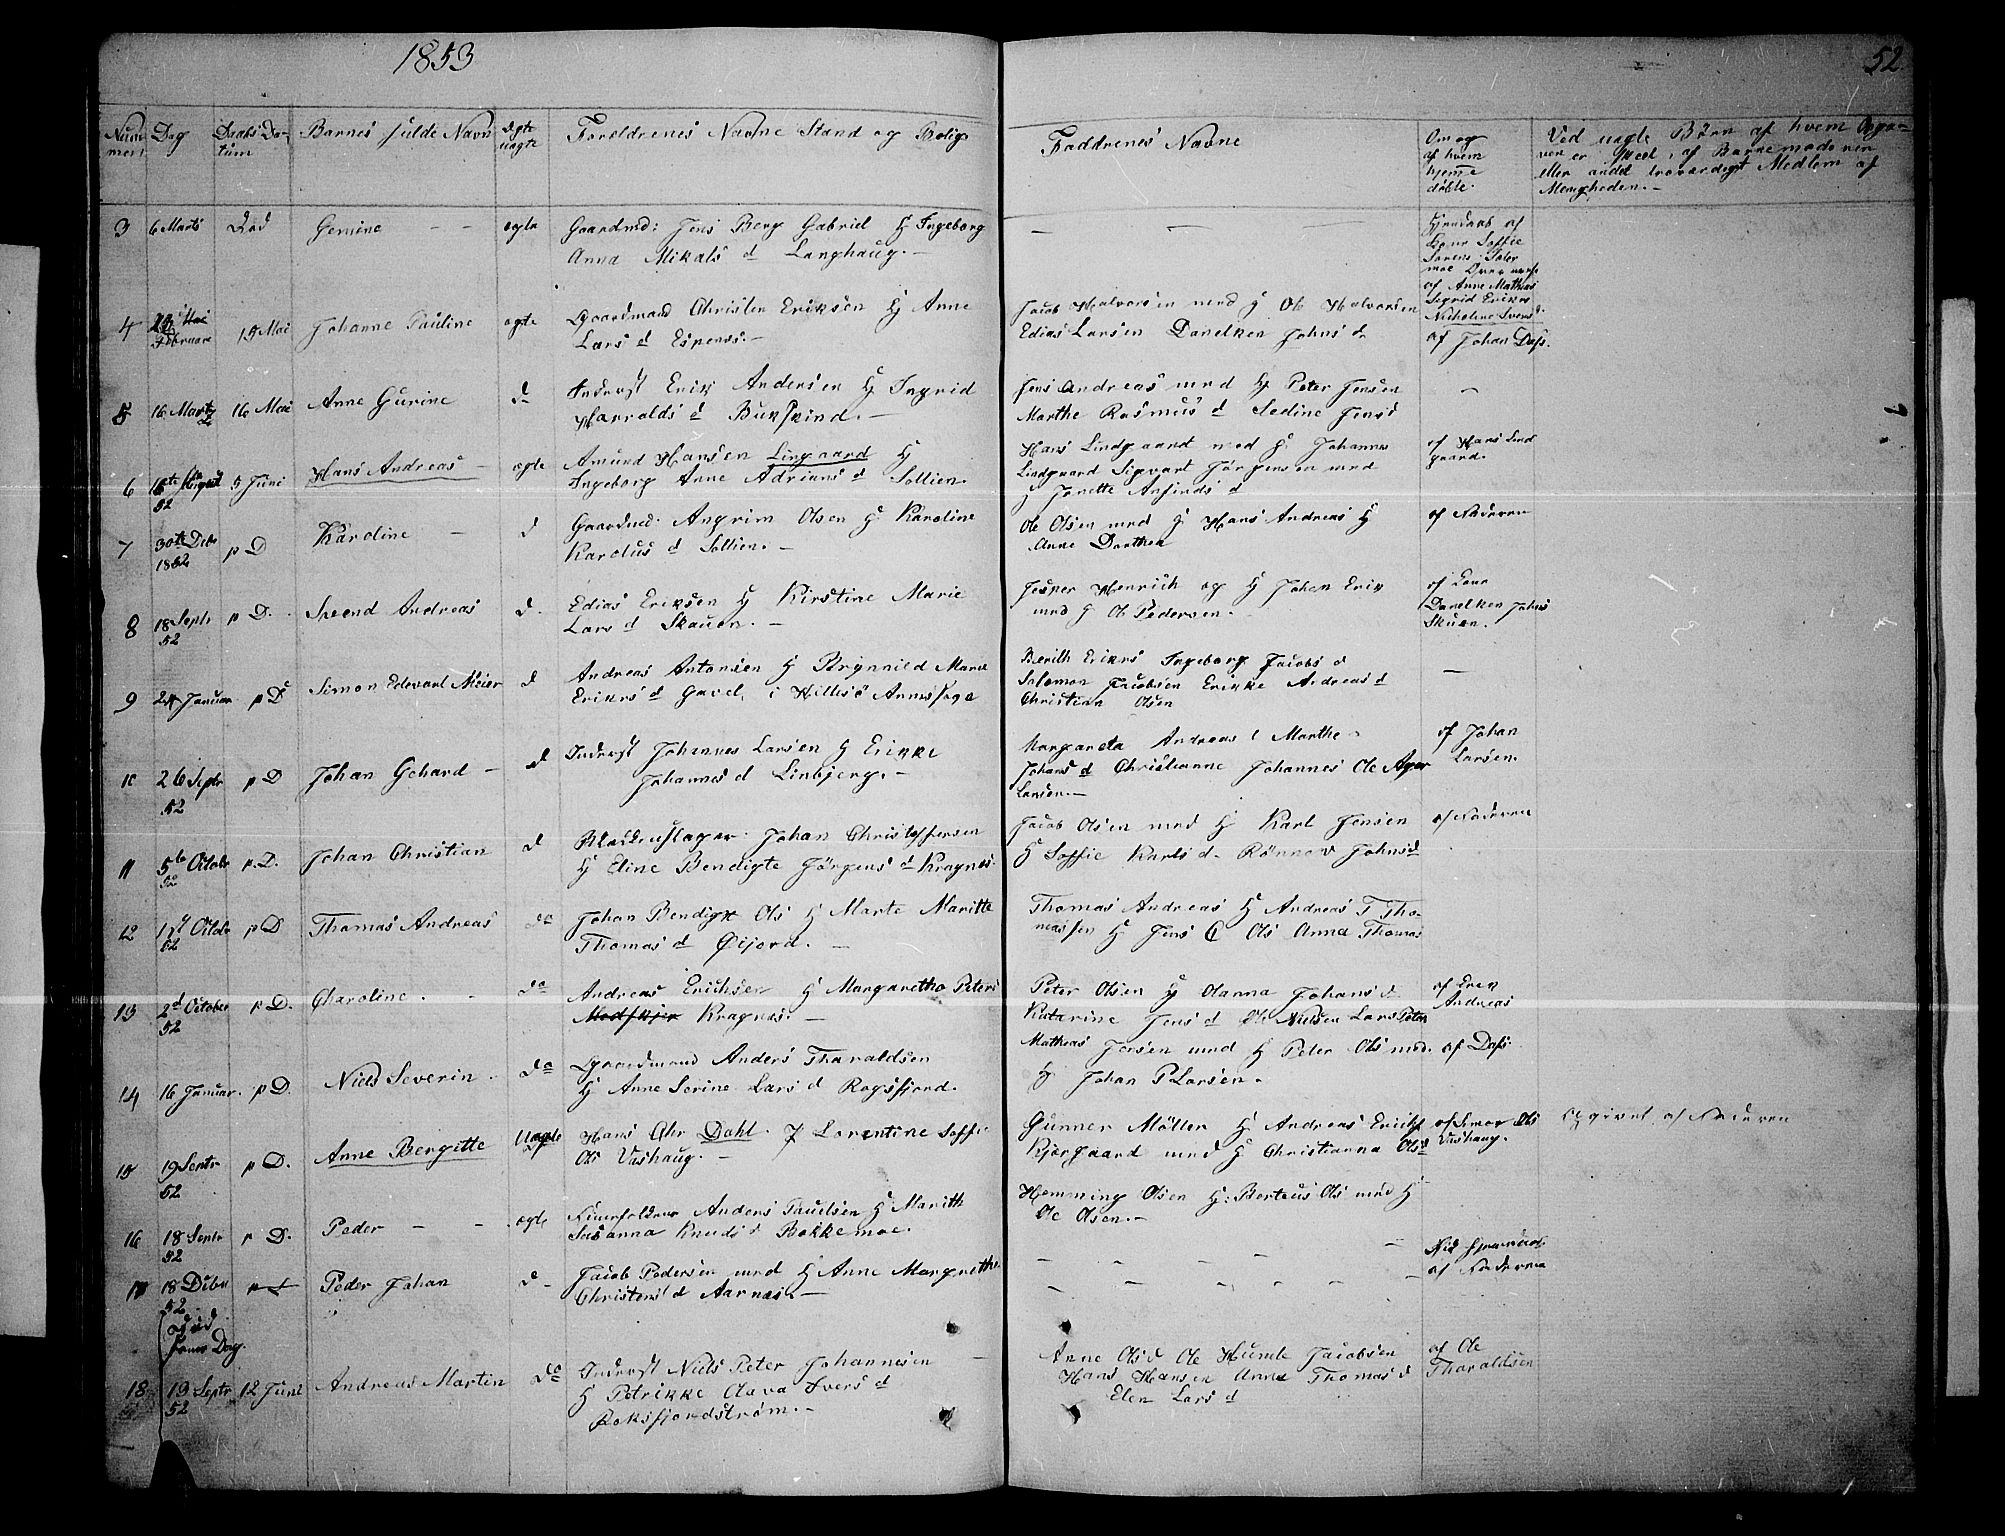 1853
52
Num Dag Daabs Da- Barnes fulde Navn Ægte Forældrenes Navne Stand og Bolig
mer tum uægte
Faddrenes Navne
Om og
af hvem
hjemme
døbte.
Ved uægte Børn af hvem Opga-
ven er skeet, af Barnemoderen
eller andet troværdigt Medlem af
Menigheden.-
3 6 Marts Død Gemine - - ægte Gaardmd: Jens Berg Gabriel H Ingeborg
Anna Mikals d Langhaug.-
Hjemdøb af
Soffie
Sørens
af Anne Mathias
Sigrid Eriks
Nicholine Ivers d.
4 Februar 15 Mai Johanne Pauline ægte Gaardmand Christen Eriksen H Anne
Lars d Espenes.-
Jacob Halvorsen med H Ole Halvorsen
Edias Larsen Danelken Johns d.
af Johan Dass.
5 16 Marts 16 Mai Anne Gurine d Inderst Erik Andersen H Ingrid
Harralds d Bukskind.-
Jens Andreas med H Peter Jensen
Marthe Rasmus d Sedine Jens d
6 August 5 Juni Hans Andreas - ægte Amund Hansen Lingaard H
52 Ingeborg Anne Adrians d Sollien.
Hans Lindgaard med H Johannes
Lindgaard Sigvart Jørgensen med
H Janette Anfinds d
af Hans Lind
gaard.
7 30te Dbr p D Karoline - d Gaardmd. Angrim Olsen H Karoline
1852 Karolus d Sollien.-
Ole Olsen med H Hans Andreas H
Anne Dorthea
af Faderen
8 18 Septr p D. Sveend Andreas d. Edias Eriksen H Kirstine Marie
52 Lars d Skauen.-
Jesper Henrich og H Johan Erik
med H Ole Pedersen.
af
Danelken Johns
Skuen.
9 24 Januar p D Simon Edevart Meier d Andreas Antonsen H Brynnild Marie
Eriks d Gavel i Hillesø Annexsogn
Berith Eriks Ingeborg Jacobs d
Salomon Jacobsen Erikke Andreas d
Christian Olsen
10 26 Septr p D Johan Gehard - d Inderst Johannes Larsen H Erikke
52 Johannes d Linbjerg.-
Margareta Andreas Marthe
Johans d Christianne Johannes Ole Ager
Larsen.-
af Johan
Larsen.
11 5te Octobr p.D. Johan Christian d Klokkeuslager Johan Christoffersen
52 H Eline Bendigte Jørgens d Kragnes.
Jacob Olsen med H Karl Jensen
H Soffie Karls d. Rönnov Johns d
af Faderen
12 17 Octobr p D Thomas Andreas do Johan Bendigt Ols H Marte Maritte
52 Thomas d Øijord.-
Thomas Andreas H Andreas T Tho-
massen H Jens C Ols Anna Thomas
13 2d October p D. Charoline. do Andreas Erichsen H Margaretha Peters
52 Kragnes.-
Peter Olsen H Olanna Johans d
Katarine Jens d Ole Nielsen Lars Peter
af Erik
Andreas
14 16 Januar. p D. Niels Severin. do Gaardmand Anders Tharaldsen
H Anne Serine Lars d Rogsfjord.
Mathias Jensen med H Peter Ols med. af Dass.
H Johan P Larsen.
15 19 Septr p D. Anne Bergitte Uægte Hans Chr Dahl. J Lorentine Soffie
52 Ols Vashaug.-
Gunner Møller H Andreas Erichs
Kjergaard med H Christianna Ols d
af Simon Ols
Vashaug.
Opgivet af Faderen
16 18 Septr p D. Peder - - ægte Anders Paulsen H Marith
52 Susanna Knuds d Bakkemoe.
Hemming Olsen H: Berteus Ols med H
Ole Olsen.-
17 18 Dcbr Peder Johan d- Jacob Pedersen med H Anne Margrethe
52 Christens d Aarnes.-
Død
samme Dag.
af Faderen
18 19 Septr 12 Juni Andreas Martin do Inderst Niels Peter Johannesen
52 H Petrikke Olava Ivers d
Roksfjordstrøm.-
Anne Ols d Ole Hunde Jacobsen
Hans Hansen Anne Thomas d
Elen Lars d
af Ole
Tharaldsen